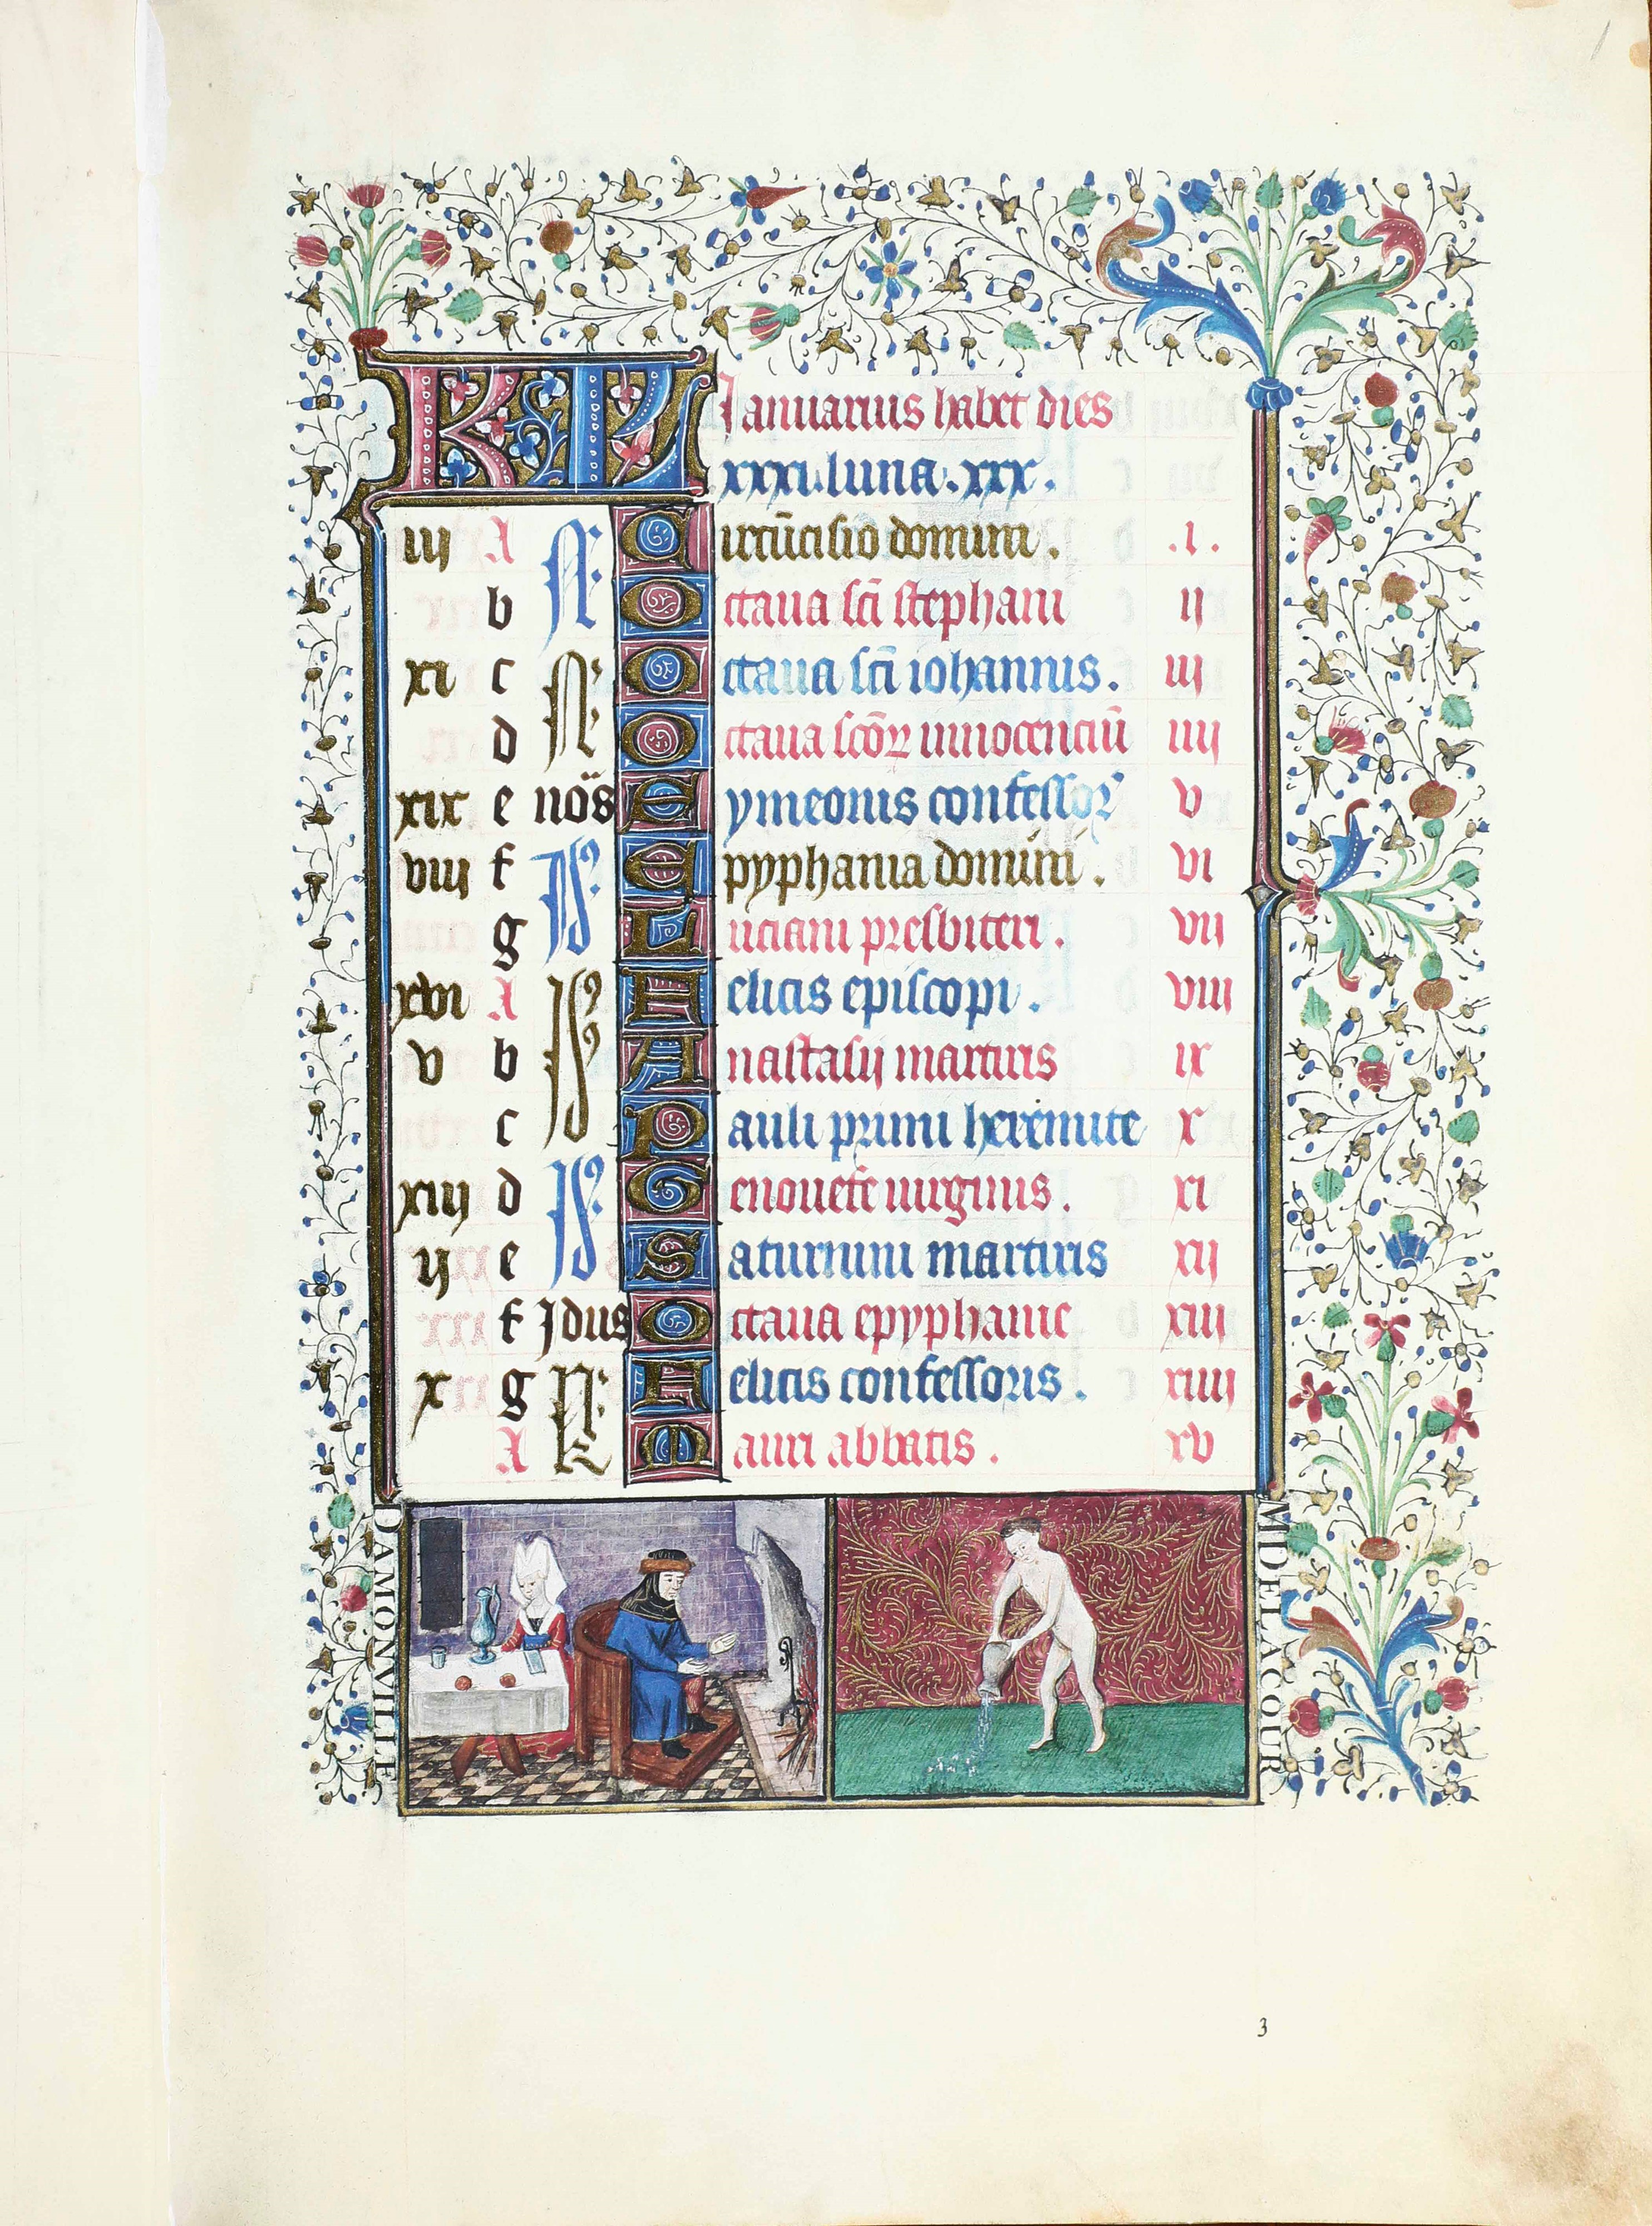 KL Januarius habet dies
xxxi. luna. xxx.
iii A N. Circūcisio domini. .i.
b Octaua scī stephani ii
xi c N. Octaua scī iohannis. iii
d Octaua scōꝝ innocenciū iiii
xix e nōs Symeonis confessoꝝ v
viii f Is. Epyphania domini. vi
g Luciani presbiteri. vii
xvi A Is. Felicis episcopi. viii
v b Anastasij martiris ix
c Pauli primi heremite x
xiij d Is. Genouefe uirginis. xi
ij e Saturnini martiris xij
f Idus Octaua epyphanie xiii
x g Felicis confessoris. xiiii
A K Mauri abbatis. xv
DAMONVILLE
M DELACOUR
3